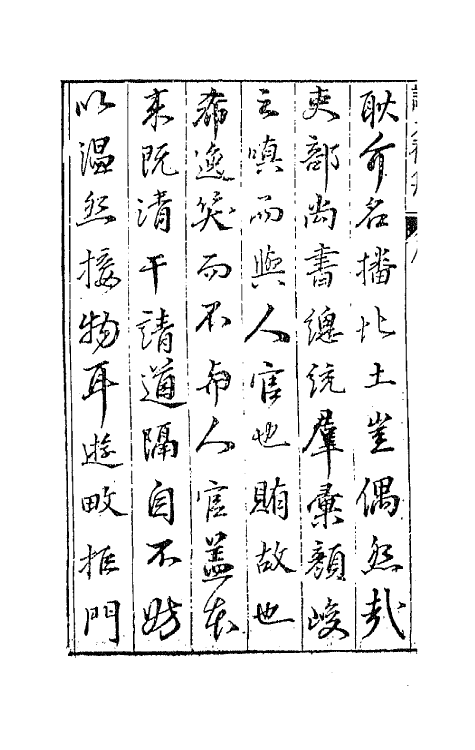 耿介名播北土豈偶然哉
吏部尚書總統羣彙顏峻
之嗔而與人官也賄故也
莊笑而不與人官蓋本
來既清干請道隔自不妨
以溫然接物耳遊畋拒門